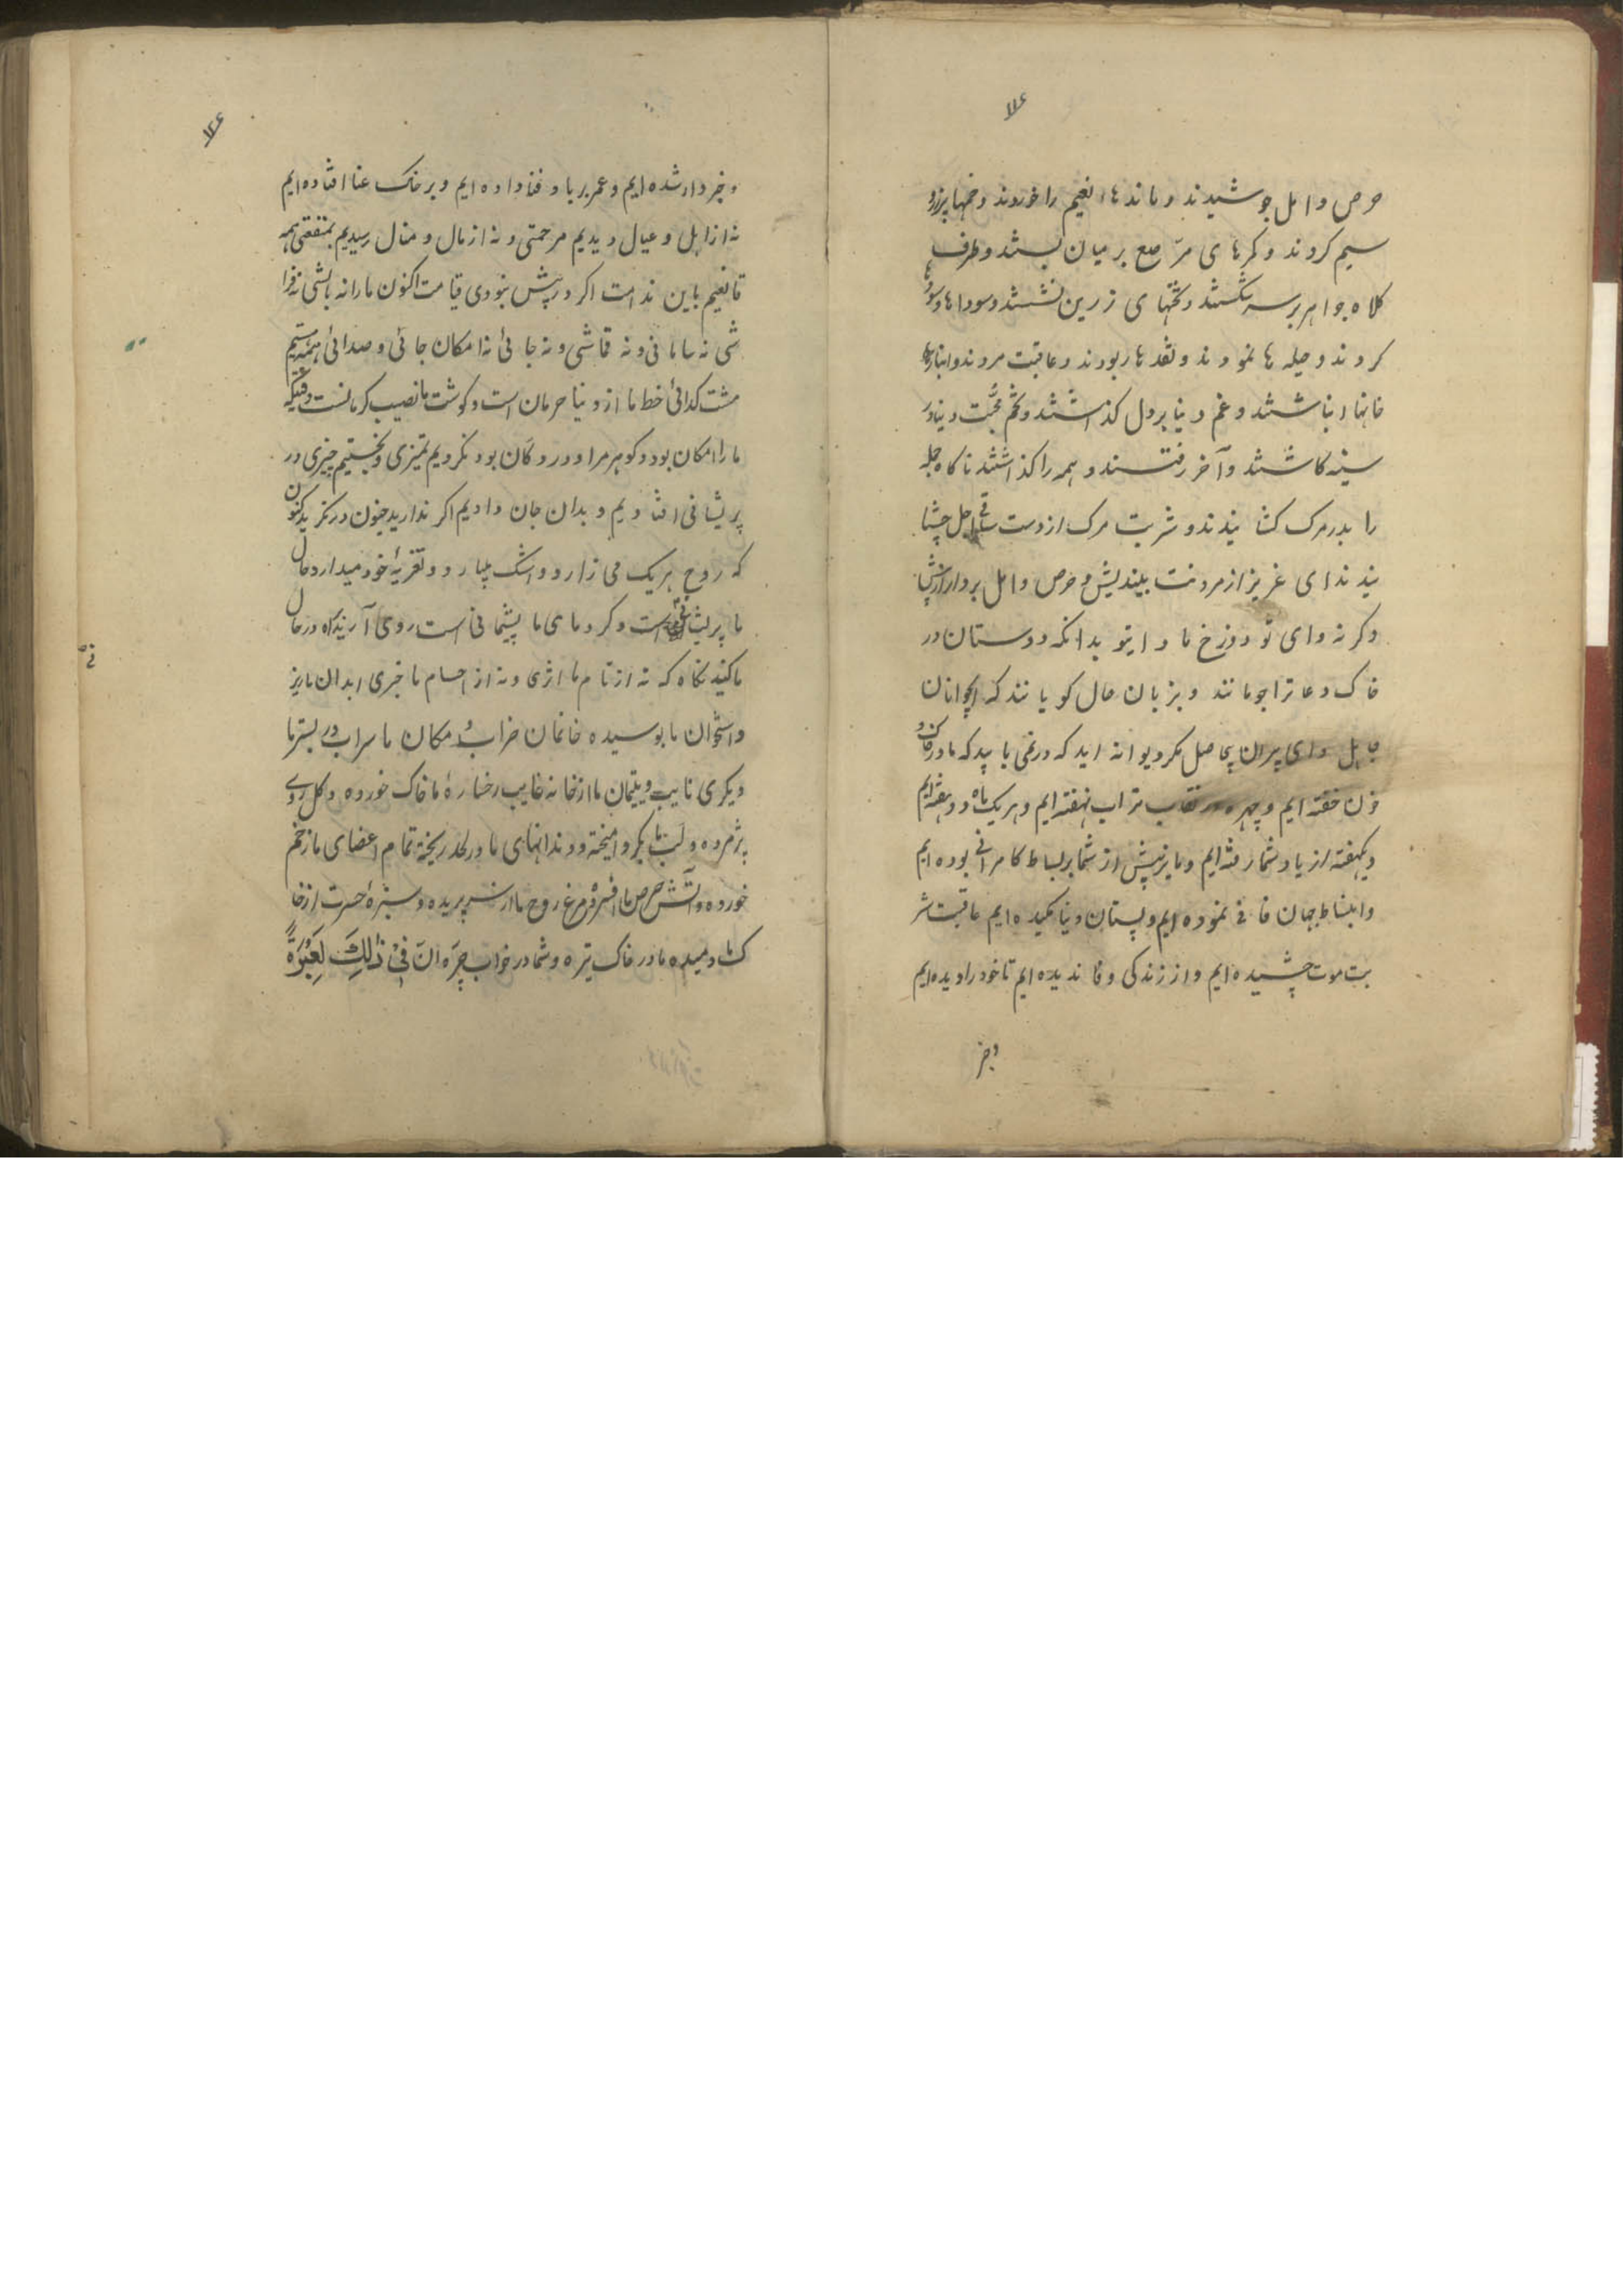 حرص و امل جوشیدند و ماندهاء نعیم را خوردند و خمها پرزر و
سیم کردند و کمرهای مرّصع بر میان بستند و طرف
کلاه جواهر بر سر شکستند و تختهای زرین نشستند و سوداها و سودها
کردند و حیله ها نمودند و نقدها ربودند و عاقبت مردند و انبارها
خانها انباشتند و غم دنیا بر دل کذاشتند و تخم محبّت دنیا در
سینه کاشتند و آخر رفتند و همه را کذاشتند ناکاه جمله
را بدر مرک کشانیدند و شربت مرک از دست ساقی اجل چشا
نیدند ای عزیز از مردنت بیندیش و حرص و امل بردار از پیش
وکرنه وای تو دوزخ ماوای تو بدانکه دوستان در
خاک دعا ترا جویانند و بزبان حال کویانند که ایجوانان
جاهل و ای پیران بی حاصل مکر دیوانه اید که درنمی یابید که ما در خاک و
خون خفته ایم و چهره در نقاب تراب نهفته ایم و هر یک ماه دو هفته ایم
و یکهفته از یاد شما رفته ایم و ما نیز پیش از شما بر بساط کامرانی بوده ایم
و انبساط جهان فانی نموده ایم و پستان دنیا مکیده ایم عاقبت شر
بت موت چشیده ایم و از زندکی وفا ندیده ایم تا خود را دیده ایم
و خبر
و خبردار شده ایم و عمر بر باد فنا داده ایم و بر خاک عنا افتاده ایم
نه از اهل و عیال دیدیم مرحمتی و نه از مال و منال رسیدیم بمنفعتی همه
قانعیم باین ندامت اکر در پیش نبودی قیامت اکنون ما را نه بالشی نه فرا
شی نه سامانی و نه قماشی و نه جائی نه امکان جائی و صدائی همه هستیم
مشت کدائی خط ما از دنیا حرمان است و کوشت ما نصیب کرمانست وقتیکه
ما را امکان بود و کوهر مراد در دکان بود نکردیم تمیزی و نجستیم چیزی در
پریشانی افتادیم و بدان جان دادیم اکر ندارید جنون درنکرید کنون
که روح هر یک می زارد و اشک میبارد و تعزیهٔ خود میدارد حال
ما پریشانی است و کرد مای ما پشیمانی است روی آرید براه در حال
ما کنید نکاه که نه از نام ما اثری و نه از اجسام ما خبری ابدان ما ریز
و استخوان ما بوسیده خانمان خراب و مکان ما سراب و بر بستر ما
دیکری نایب و یتیمان ما از خانه غایب رخسارهٔ ما خاک خورده و کل روی
پژمرده و لب ما بکرد امیخته و دندانهای ما در لحد ریخته تمام اعضای ما زخم
خورده و آتش حرص ما افسرده مرغ روح ما از سر پریده و سبزهٔ حسرت از خا
ک ما دمیده ما در خاک تیره و شما در خواب چرَه انّ فِیْ ذٰلِکَ لَعِبْرَةً